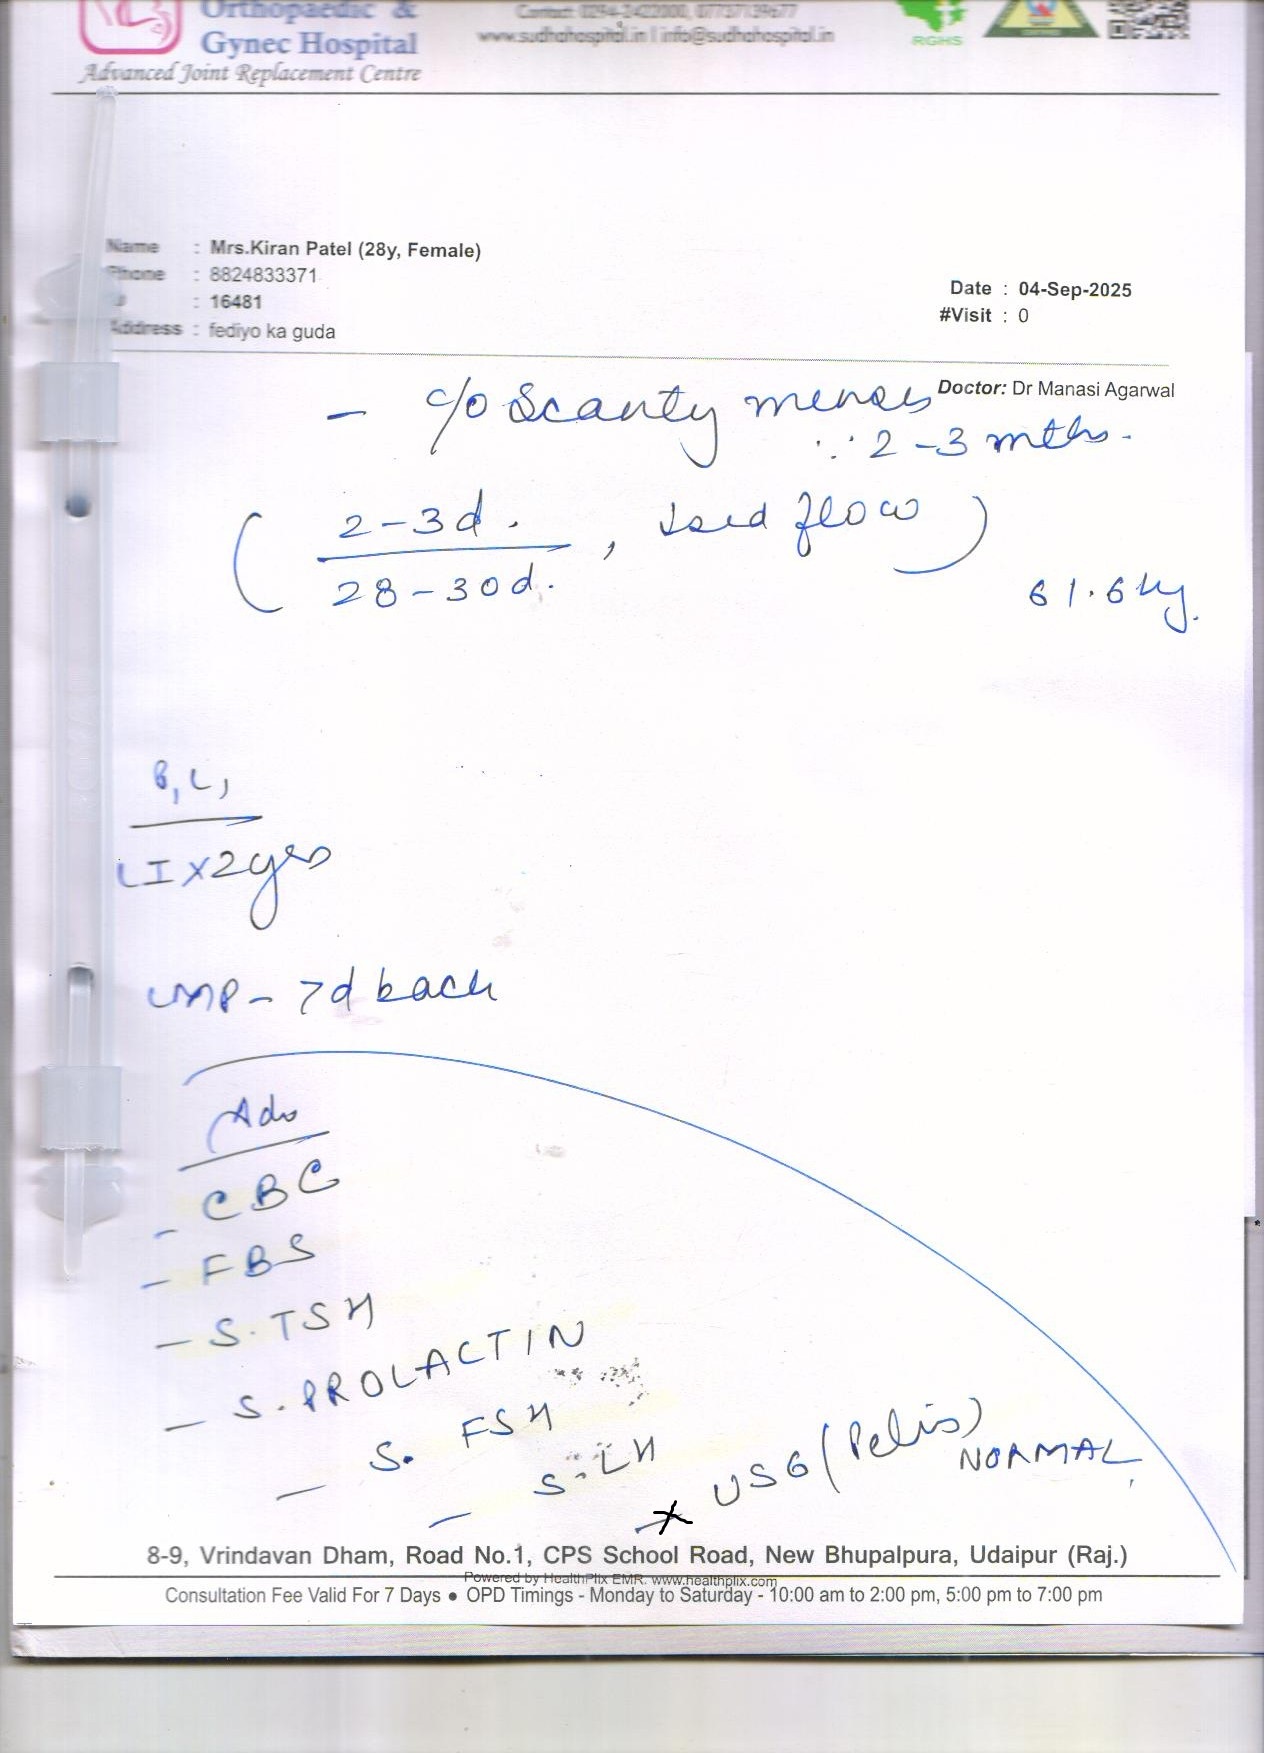 Orthopaedic &
Gynec Hospital
Advanced Joint Replacement Centre
www.sudhahospital.in | info@sudhahospital.in
RGHS
Name : Mrs.Kiran Patel (28y, Female)
Phone : 8824833371
: 16481
Address : fediyo ka guda
Date : 04-Sep-2025
#Visit : 0
Doctor: Dr Manasi Agarwal
- c/o Scanty menses
∵ 2-3 mths.
( 2-3d.
28-30d. , flow )
61.6kg.
LI x 2yrs
LMP - 7d back
Adv
- CBC
- FBS
- S. TSH
- S. PROLACTIN
- S. FSH
- S. LH
USG (Pelvis)
NORMAL
8-9, Vrindavan Dham, Road No.1, CPS School Road, New Bhupalpura, Udaipur (Raj.)
Powered by HealthPlix EMR. www.healthplix.com
Consultation Fee Valid For 7 Days ● OPD Timings - Monday to Saturday - 10:00 am to 2:00 pm, 5:00 pm to 7:00 pm